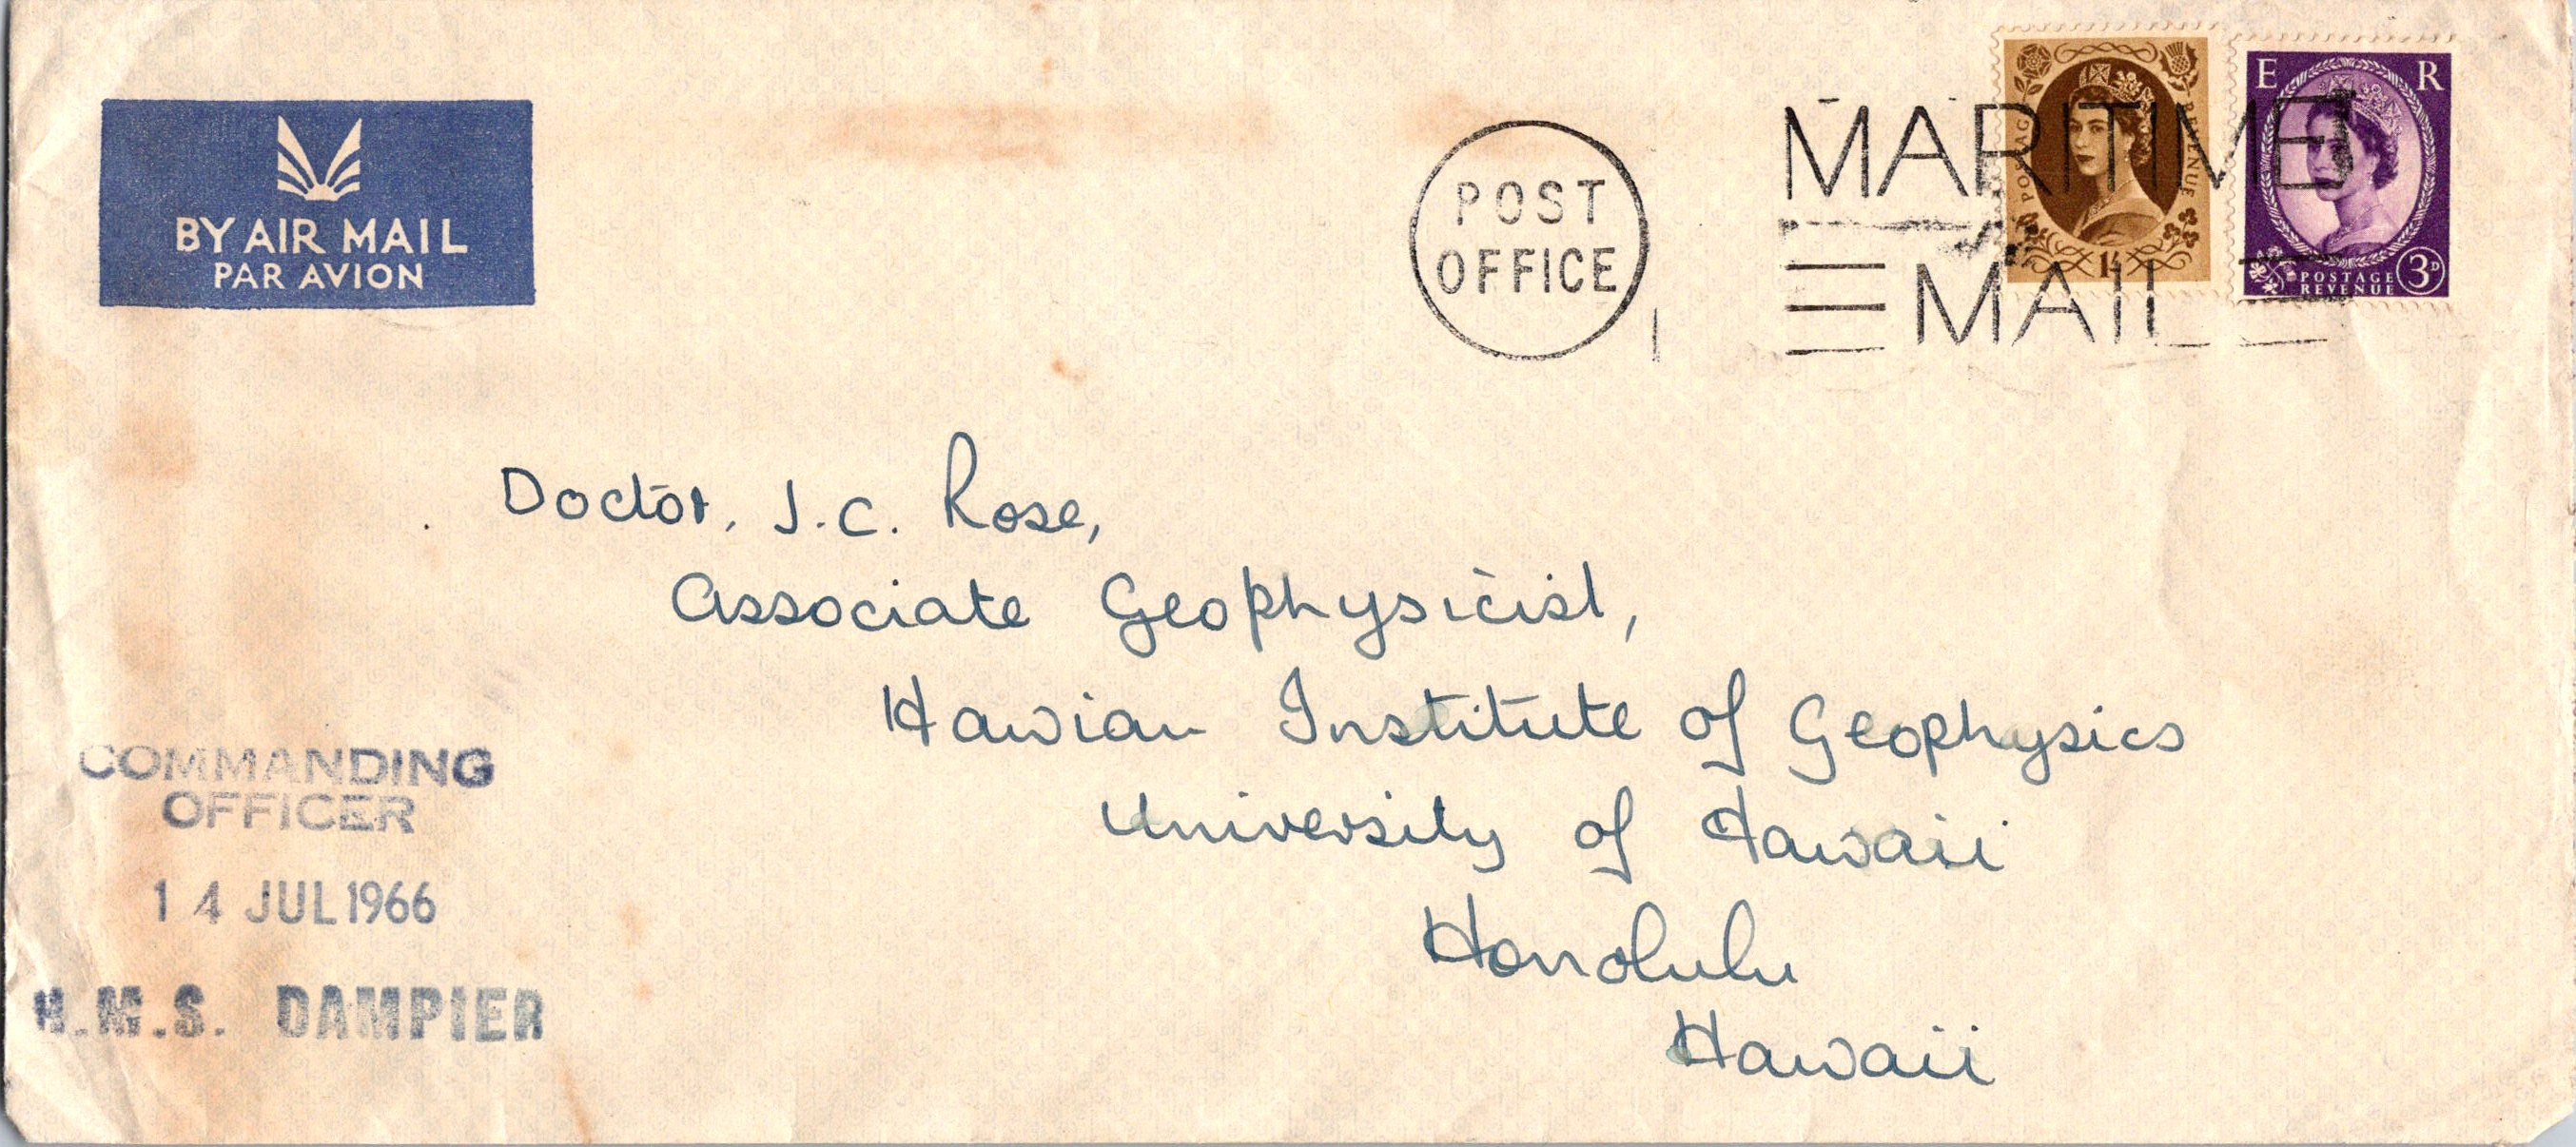 BY AIR MAIL
PAR AVION
POST
OFFICE
MARITIME
MAIL
POSTAGE
REVENUE
1/-
E R
POSTAGE
REVENUE
3D
Doctor, J.C. Rose,
Associate Geophysicist,
Hawian Institute of Geophysics
University of Hawaii
Honolulu
Hawaii
COMMANDING
OFFICER
14 JUL 1966
H.M.S. DAMPIER